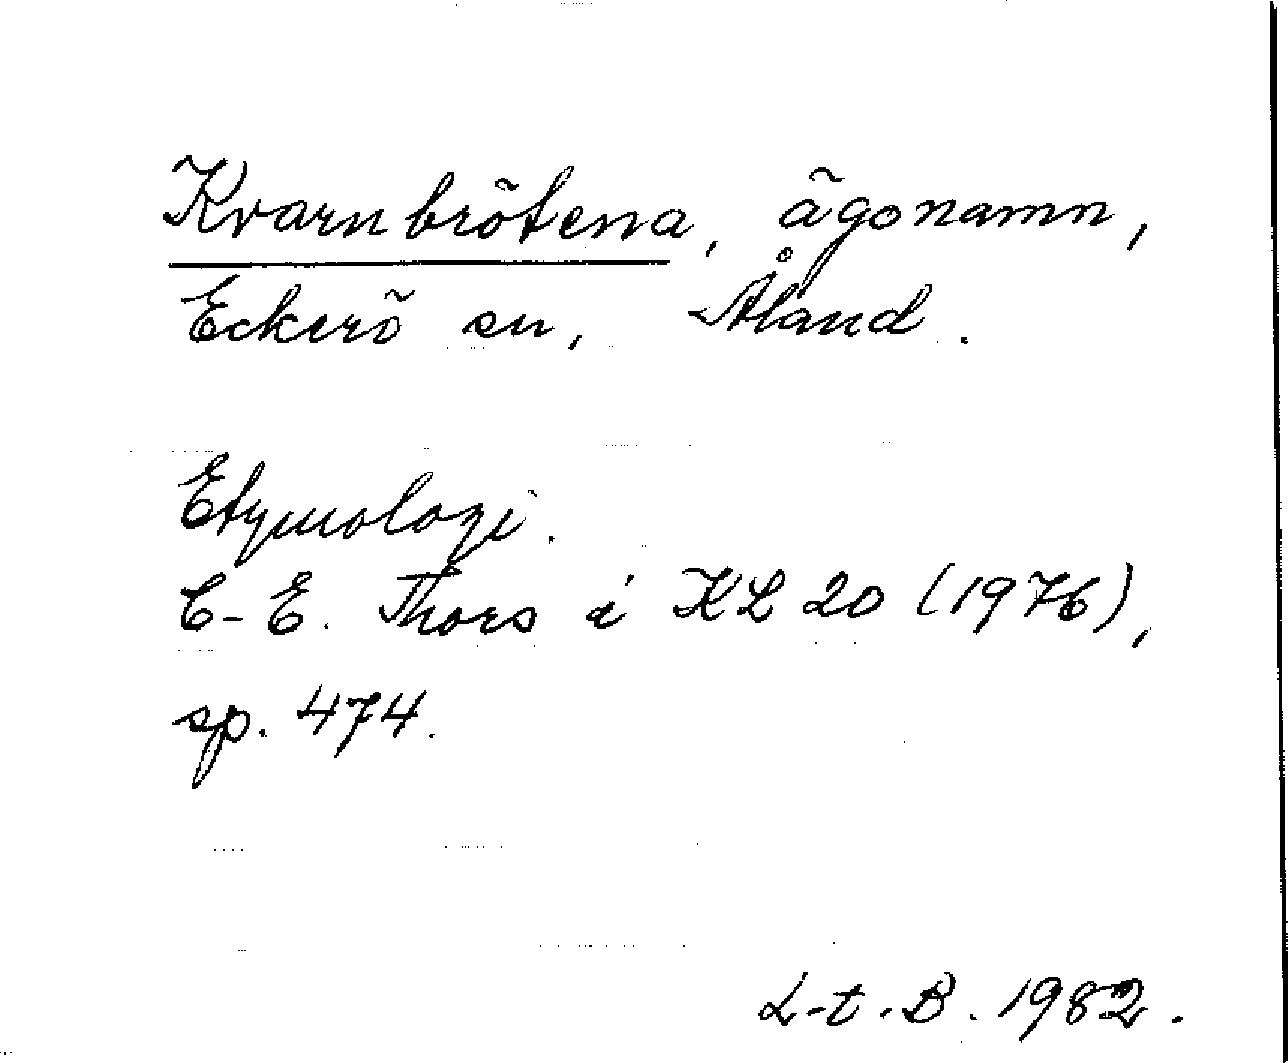 Kvarnbrötena, ägonamn,
Eckerö sn, Åland.
Etymologi.
C-E. Thors i KL 20 (1976),
sp. 474.
L-t. B. 1982.